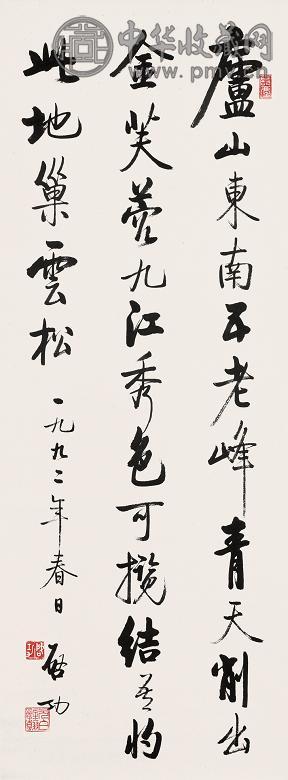 中华收藏网
廬山東南五老峰青天削出
金芙蓉九江秀色可攬結吾將
此地巢雲松
一九九二年春日
啟功